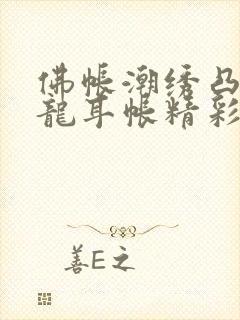 佛帐潮绣凸
龍耳帐精彩
善E之